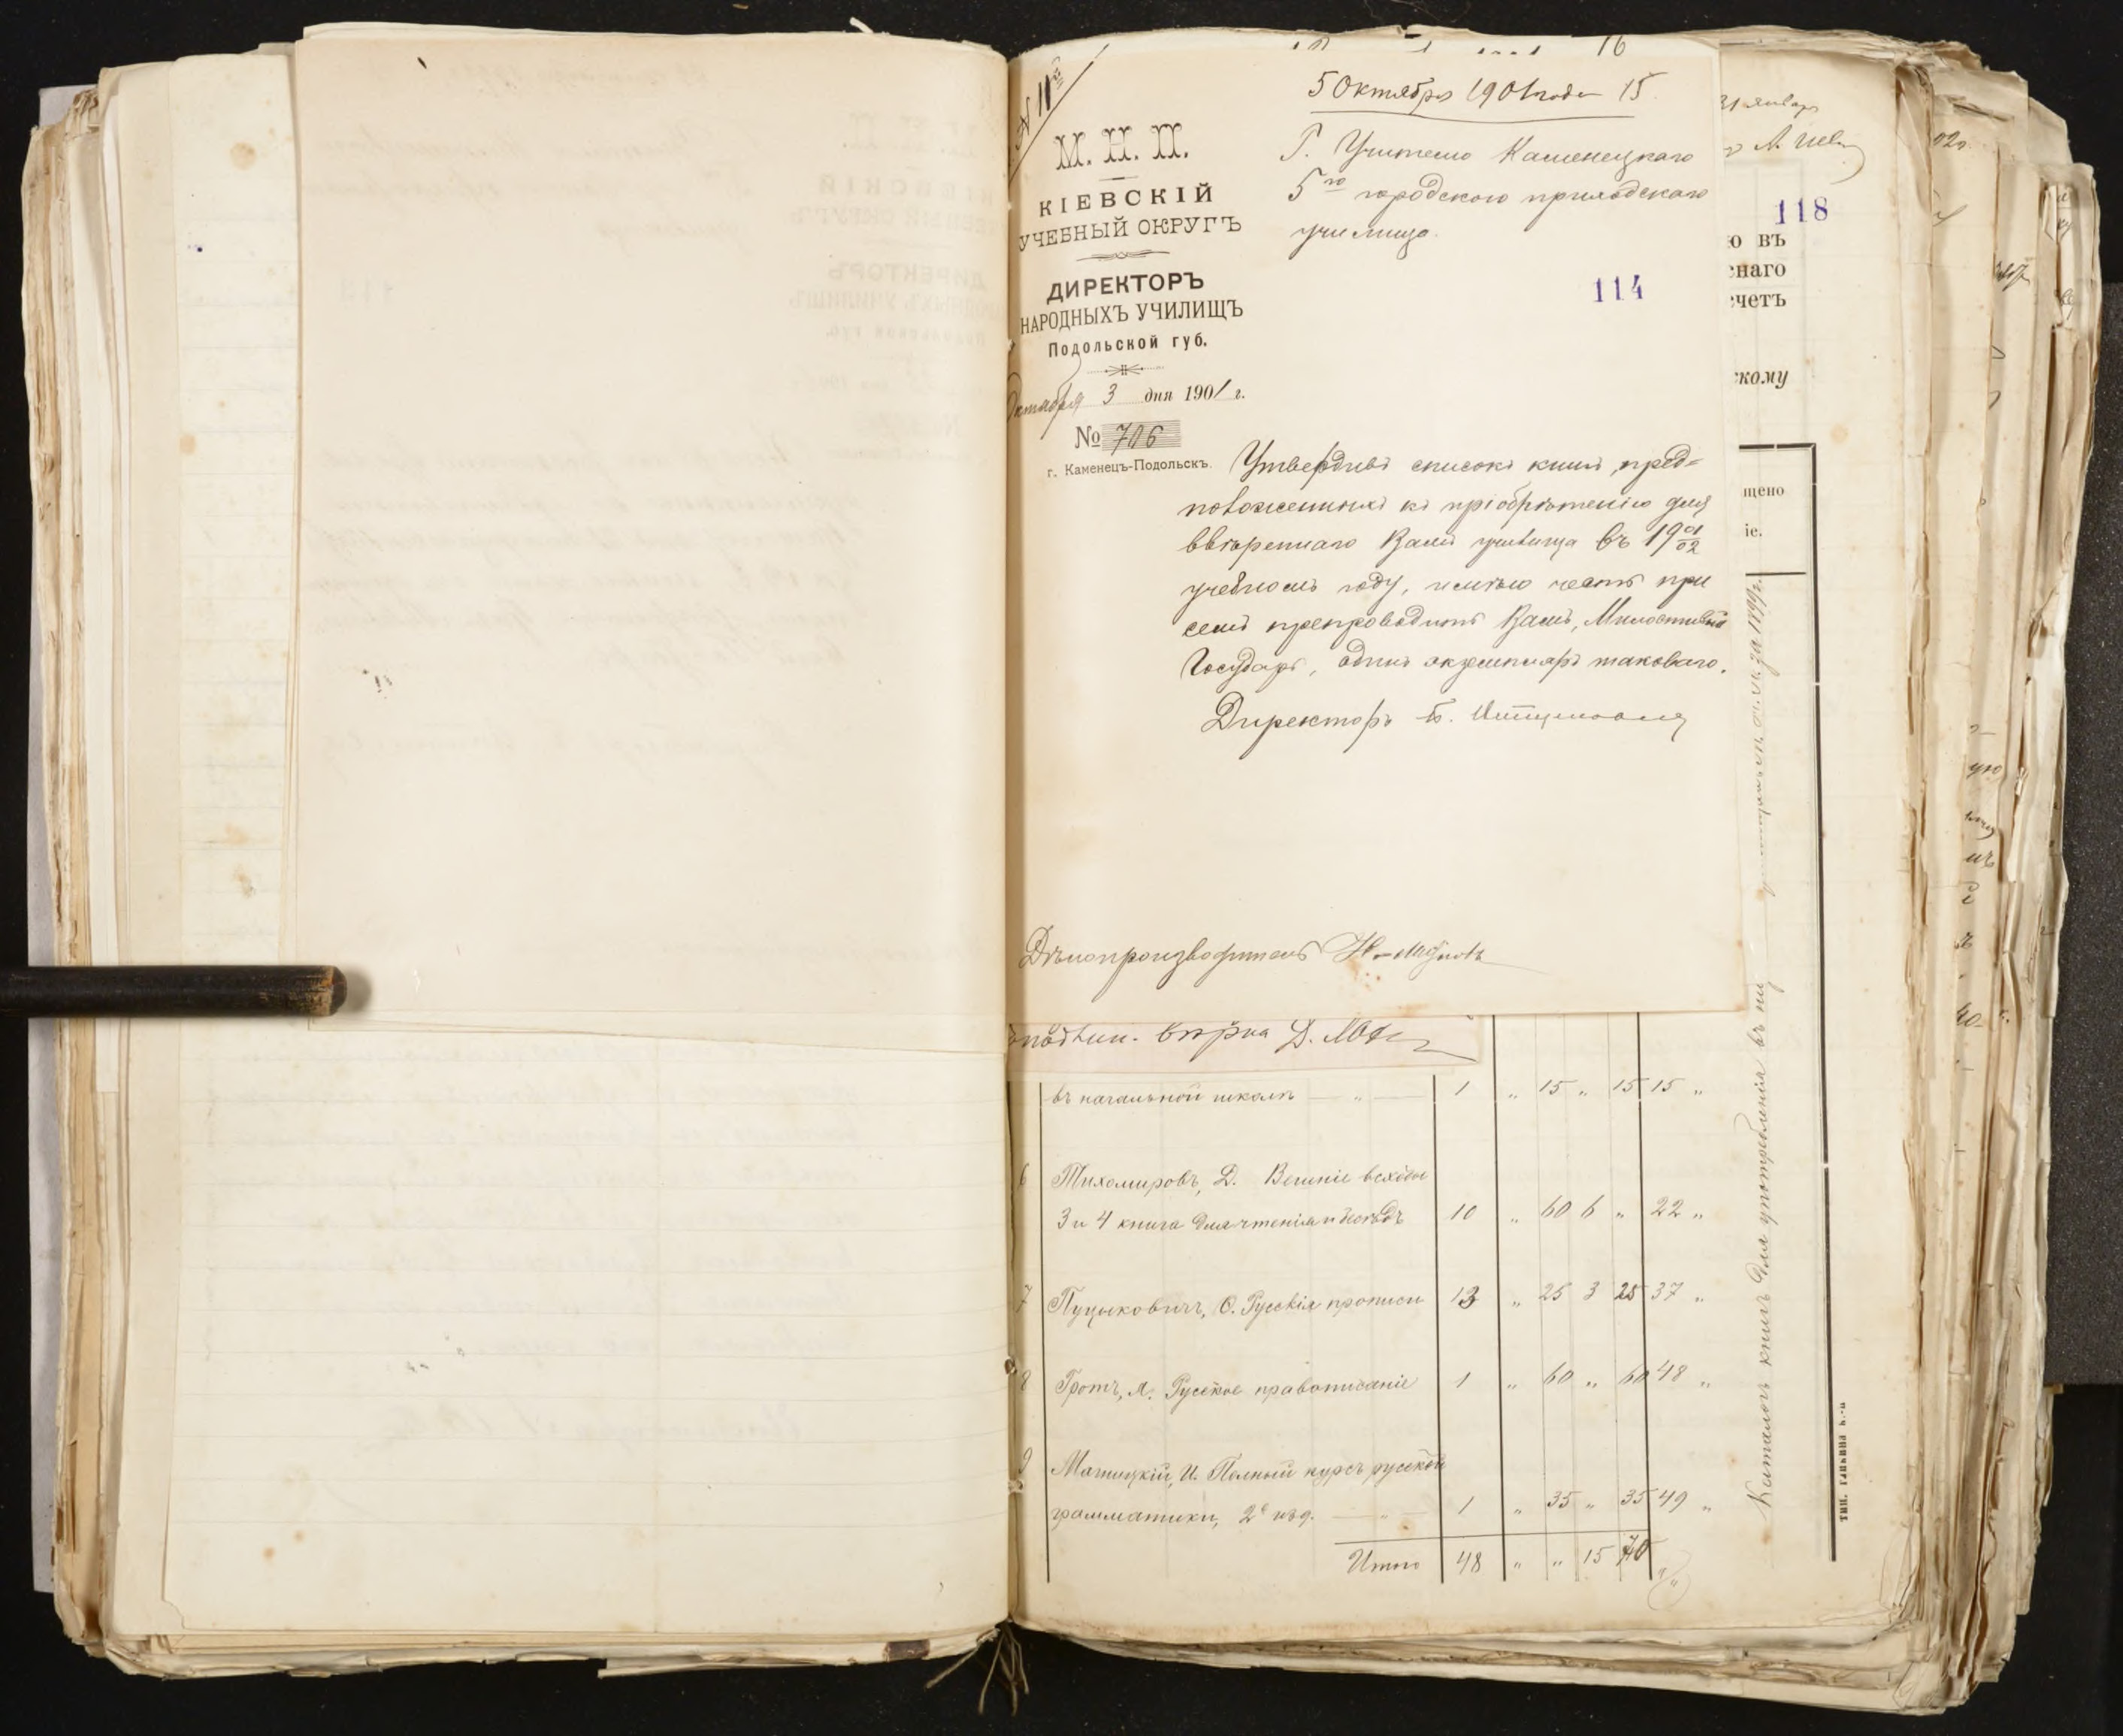 16
5 Октября 1901 года 15
М. Н. П.
КІЕВСКІЙ
УЧЕБНЫЙ ОКРУГЪ
ДИРЕКТОРЪ
НАРОДНЫХЪ УЧИЛИЩЪ
Подольской губ.
Октября 3 дня 1901 г.
№ 706
г. Каменецъ-Подольскъ.
Г. Учителю Каменецкаго
5го городского приходскаго
училища.
114
Утвердивъ списокъ книгъ, пред-
положенныхъ къ пріобрѣтенію для
ввѣреннаго Вамъ училища въ 19 01/02
учебномъ году, имѣю честь при
семъ препроводить Вамъ, Милостивый
Государь, одинъ экземпляръ таковаго.
Директоръ
Дѣлопроизводитель
31 январ
118
ю въ
наго
четъ
скому
щено
іе.
вѣрна
въ начальной школѣ — „ — 1 „ 15 „ 15 15 „
6 Тихомировъ, Д. Вешніе всходы
3 и 4 книга для чтенія и бесѣдъ 10 „ 60 6 „ 22 „
7 Пуцыковичъ, Ѳ. Русскія прописи 13 „ 25 3 25 37 „
8 Гротъ, Я. Русское правописаніе 1 „ 60 „ 60 48 „
9 Магницкій, И. Полный курсъ русской
грамматики, 2е изд. — „ — 1 „ 35 „ 35 49 „
Итого 48 „ „ 15 70 „
Каталогъ книгъ для употребленія въ ни